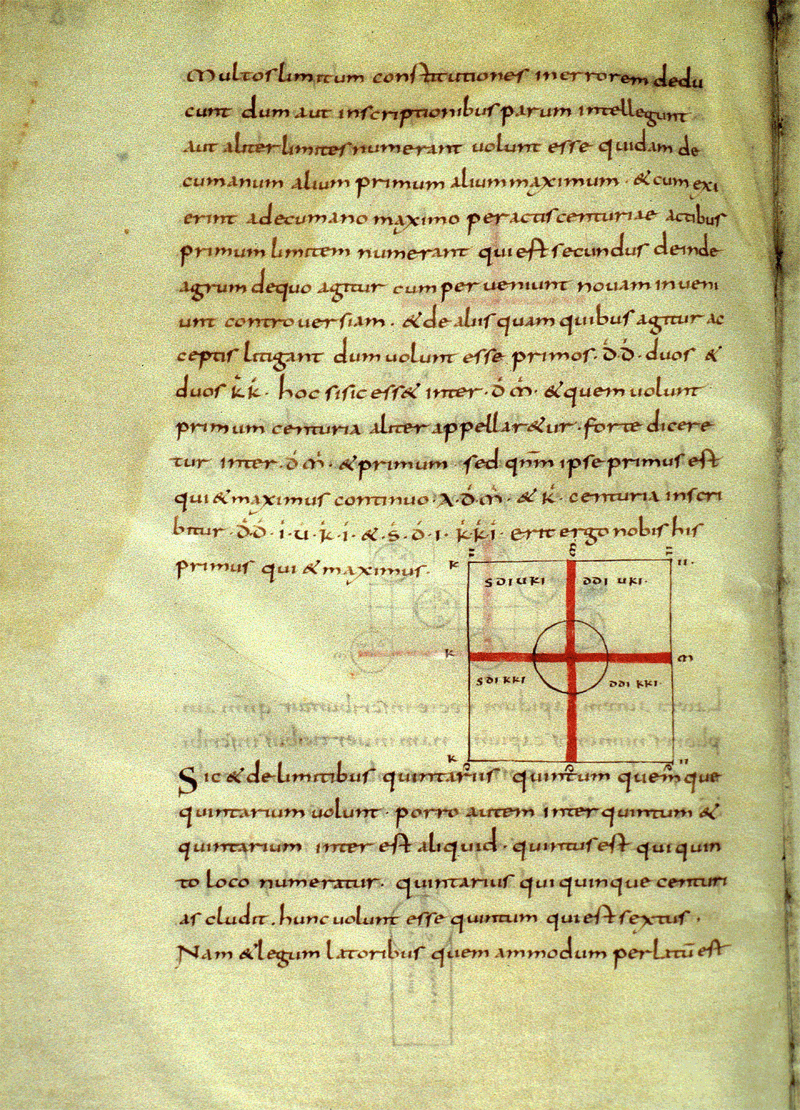 Multos limitum constitutiones in errorem dedu
cunt dum aut inscriptionibus parum intellegunt
aut aliter limites numerant uolunt esse quidam de
cumanum alium primum alium maximum · & cum exi
erint adecumano maximo peractis centuriae actibus
primum limitem numerant qui est secundus deinde
agrum dequo agitur cum per ueniunt nouam inueni
unt controuersiam · & de aliis quam quibus agitur ac
ceptis litigant dum uolunt esse primos · D̄ D̄ · duos &
duos k̄ k̄ · hoc si sic ess& inter · D̄ m̄ · & quem uolunt
primum centuria aliter appellar&ur · forte dicere
tur inter · D̄ m̄ · & primum sed qnm̄ ipse primus est
qui & maximus continuo · D̄ m̄ · & k̄ · centuria inscri
bitur · D̄ D̄ · i · u · k̄ · i · & · s̄ · D̄ · i · k̄ k̄ i · erit ergo nobis his
primus qui & maximus ·
k
s D I u k I
D D I u k I ·
k
m
s D I k k I
D D I k k I ·
k
Sic & de limitibus quintariis quintum quemque
quintarium uolunt · porro autem inter quintum &
quintarium inter est aliquid · quintus est qui quin
to loco numeratur · quintarius qui quinque centuri
as cludit . hunc uolunt esse quintum qui est sextus ·
Nam & legum latoribus quem ammodum per latū est